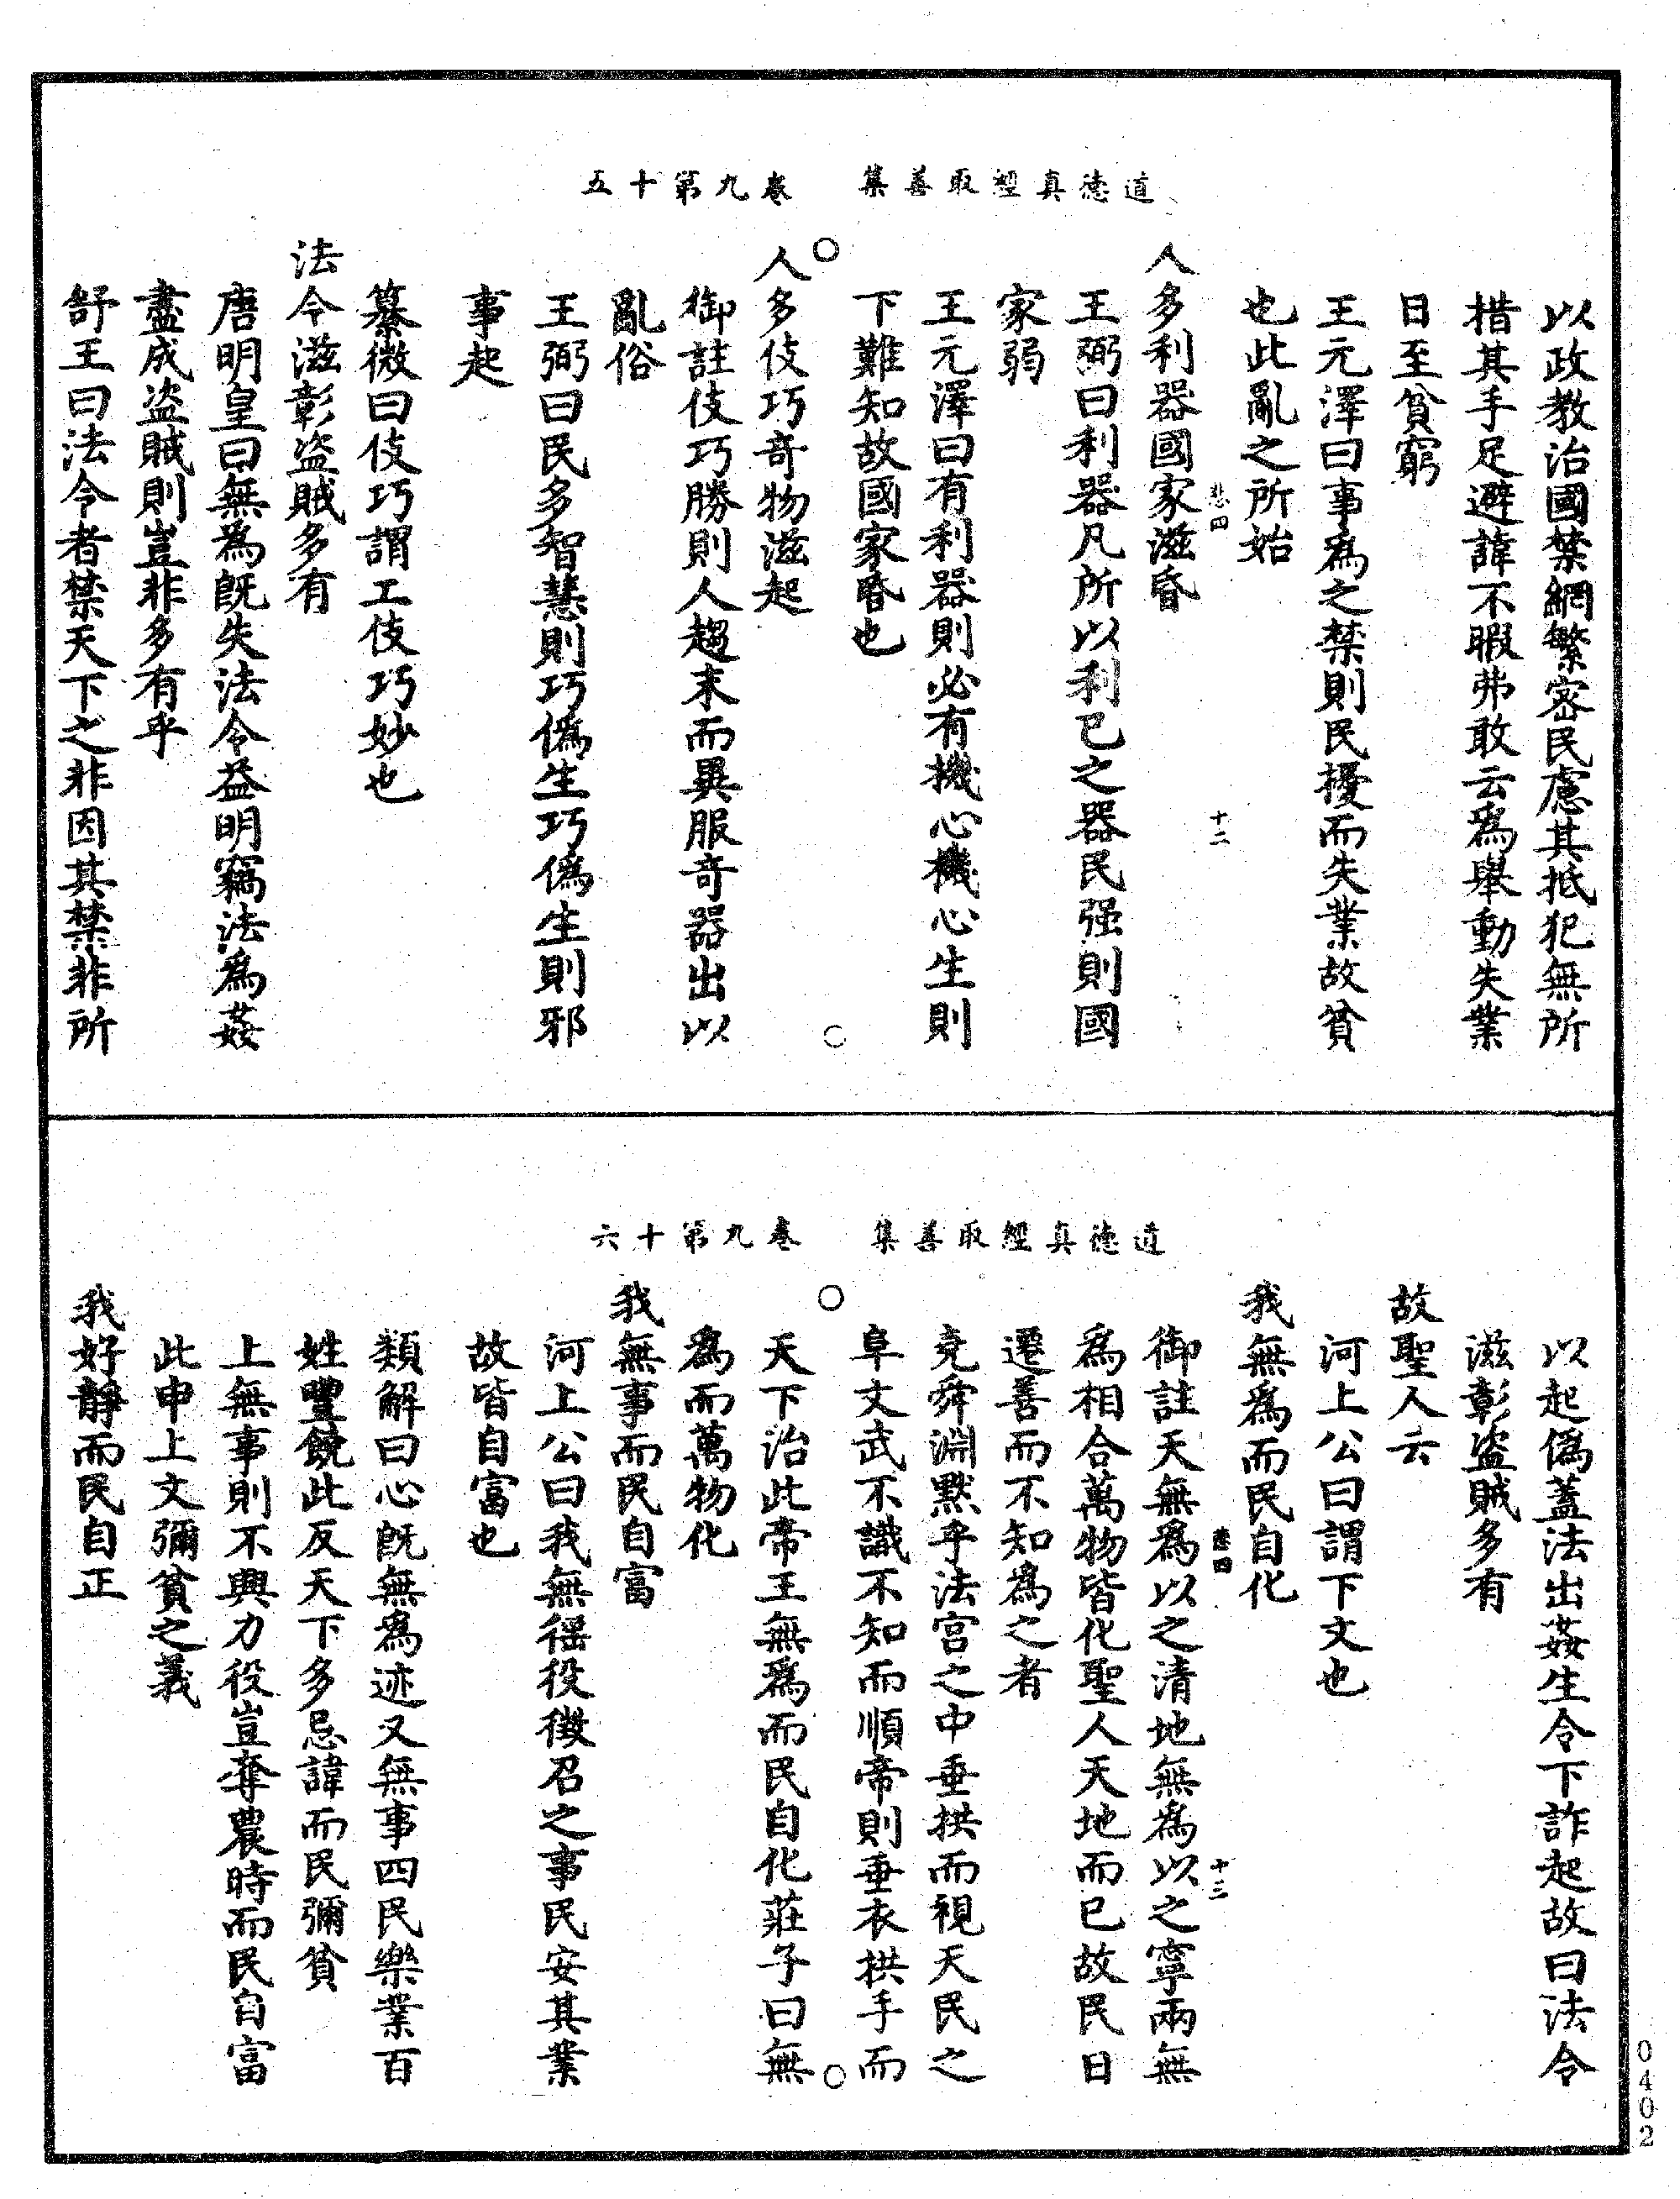 道德真經取善集　卷九第十五
以政教治國禁網繁密民慮其抵犯無所
措其手足避諱不暇弗敢云爲舉動失業
日至貧窮
王元澤曰事爲之禁則民擾而失業故貧
也此亂之所始
悲四　十二
人多利器國家滋昏
王弼曰利器凡所以利已之器民强則國
家弱
王元澤曰有利器則必有機心機心生則
下難知故國家昏也
人多伎巧奇物滋起
御註伎巧勝則人趨末而異服奇器出以
亂俗
王弼曰民多智慧則巧僞生巧僞生則邪
事起
纂微曰伎巧謂工伎巧妙也
法令滋彰盜賊多有
唐明皇曰無爲旣失法令益明竊法爲姦
盡成盜賊則豈非多有乎
舒王曰法令者禁天下之非因其禁非所
道德真經取善集　卷九第十六
以起僞蓋法出姦生令下詐起故曰法令
滋彰盜賊多有
故聖人云
河上公曰謂下文也
我無爲而民自化
悲四　十三
御註天無爲以之清地無爲以之寧兩無
爲相合萬物皆化聖人天地而已故民日
遷善而不知爲之者
堯舜淵默乎法宫之中垂拱而視天民之
阜文武不識不知而順帝則垂衣拱手而
天下治此帝王無爲而民自化莊子曰無
爲而萬物化
我無事而民自富
河上公曰我無徭役徵召之事民安其業
故皆自富也
類解曰心旣無爲迹又無事四民樂業百
姓豐饒此反天下多忌諱而民彌貧
上無事則不興力役豈奪農時而民自富
此申上文彌貧之義
我好靜而民自正
0402